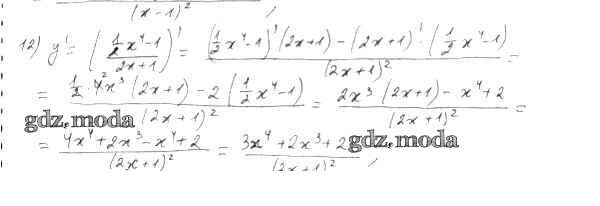 (x-1)²
12) y' = ((1/2 x⁴-1)/(2x+1))' = ((1/2 x⁴-1)'(2x+1) - (2x+1)' · (1/2 x⁴-1))/(2x+1)² =
= (1/2 · 4² x³ (2x+1) - 2 (1/2 x⁴-1))/(2x+1)² = (2x³ (2x+1) - x⁴+2)/(2x+1)² =
gdz.moda
= (4x⁴+2x³-x⁴+2)/(2x+1)² = (3x⁴+2x³+2)/(2x+1)² ;
gdz.moda